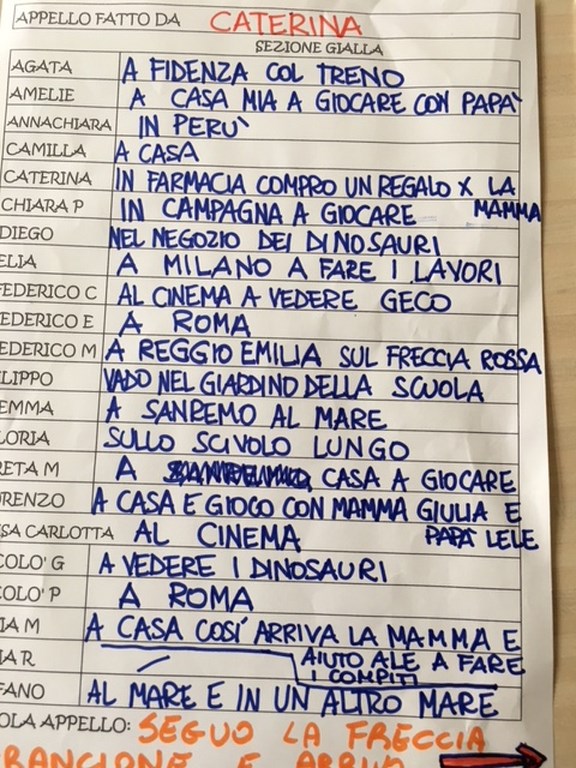 APPELLO FATTO DA CATERINA
SEZIONE GIALLA
AGATA A FIDENZA COL TRENO
AMELIE A CASA MIA A GIOCARE CON PAPA'
ANNACHIARA IN PERU'
CAMILLA A CASA
CATERINA IN FARMACIA COMPRO UN REGALO X LA MAMMA
CHIARA P IN CAMPAGNA A GIOCARE
DIEGO NEL NEGOZIO DEI DINOSAURI
ELIA A MILANO A FARE I LAVORI
FEDERICO C AL CINEMA A VEDERE GECO
EDERICO E A ROMA
EDERICO M A REGGIO EMILIA SUL FRECCIA ROSSA
ILIPPO VADO NEL GIARDINO DELLA SCUOLA
EMMA A SANREMO AL MARE
LORIA SULLO SCIVOLO LUNGO
RETA M A CASA A GIOCARE
ORENZO A CASA E GIOCO CON MAMMA GIULIA E PAPÀ LELE
SA CARLOTTA AL CINEMA
COLO' G A VEDERE I DINOSAURI
COLO' P A ROMA
IA M A CASA COSÌ ARRIVA LA MAMMA E AIUTO ALE A FARE I COMPITI
IA R
FANO AL MARE E IN UN ALTRO MARE
OLA APPELLO: SEGUO LA FRECCIA
RANCIONE E ARRIVO